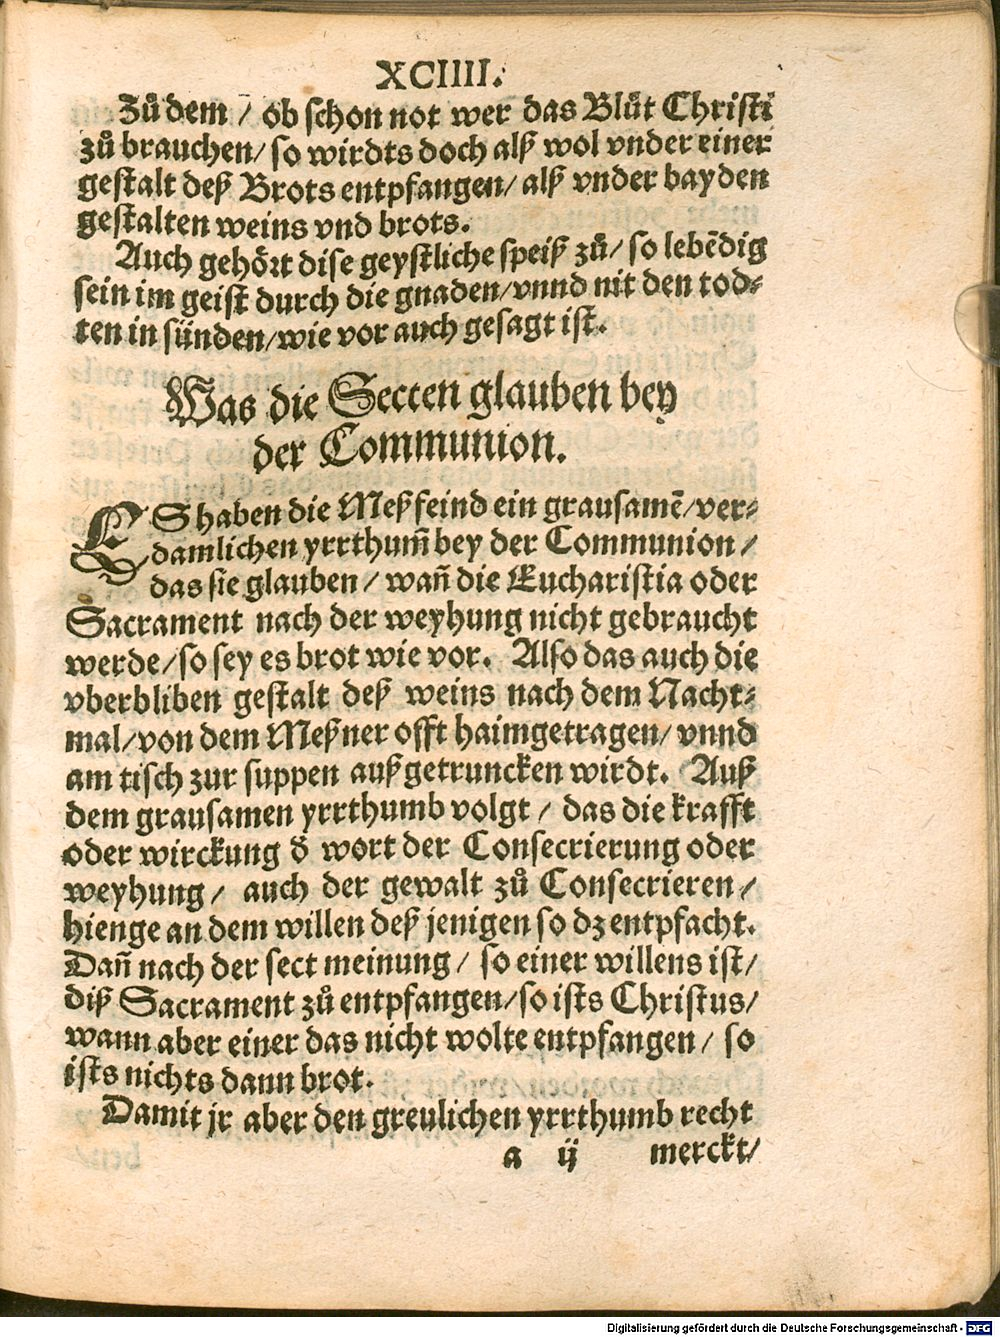 XCIIII.
Zů dem / ob schon not wer das Blůt Christi
zů brauchen/ so wirdts doch alß wol vnder einer
gestalt deß Brots entpfangen/ alß vnder bayden
gestalten weins vnd brots.
Auch gehört dise geystliche speiß zů/ so lebēdig
sein im geist durch die gnaden/vnnd nit den tod⸗
ten in sünden/wie vor auch gesagt ist.
Was die Secten glauben bey
der Communion.
ES haben die Meßfeind ein grausamē/ver⸗
damlichen yrrthum̄ bey der Communion /
das sie glauben / wañ die Eucharistia oder
Sacrament nach der weyhung nicht gebraucht
werde/so sey es brot wie vor. Also das auch die
vberbliben gestalt deß weins nach dem Nacht⸗
mal/von dem Meßner offt haimgetragen/ vnnd
am tisch zur suppen außgetruncken wirdt. Auß
dem grausamen yrrthumb volgt / das die krafft
oder wirckung d̕ wort der Consecrierung oder
weyhung / auch der gewalt zů Consecrieren /
hienge an dem willen deß jenigen so dz entpfacht.
Dañ nach der sect meinung / so einer willens ist/
diß Sacrament zů entpfangen/so ists Christus/
wann aber einer das nicht wolte entpfangen / so
ists nichts dann brot.
Damit jr aber den greulichen yrrthumb recht
a ij merckt/
Digitalisierung gefördert durch die Deutsche Forschungsgemeinschaft - DFG